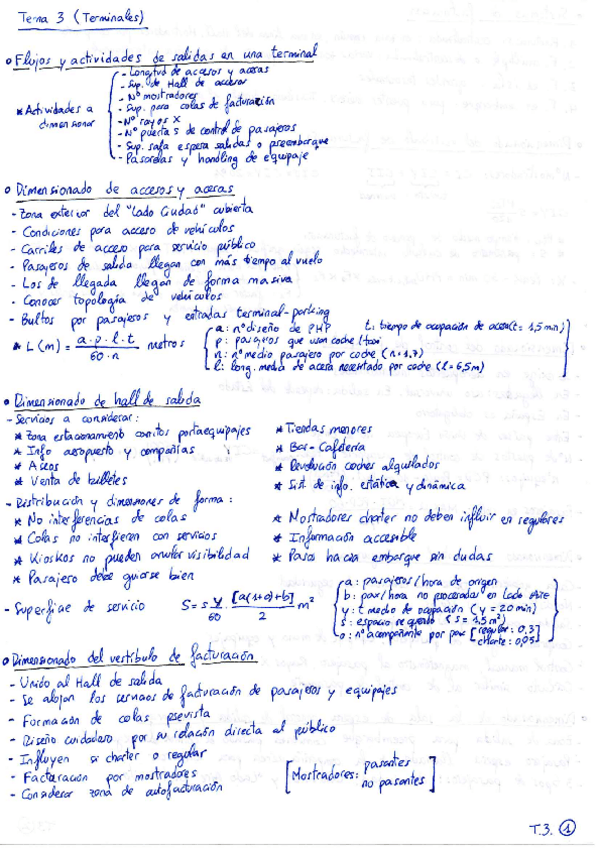 Tema 3 (Terminales)
o Flujos y actividades de salidas en una terminal
* Actividades a dimensionar
- Longitud de accesos y aceras
- Sup. de Hall de accesos
- Nº mostradores
- Sup. para colas de facturación
- Nº rayos X
- Nº puertas de control de pasajeros
- Sup. sala espera salidas o preembarque
- Pasarelas y handling de equipaje
o Dimensionado de accesos y aceras
- Zona exterior del "Lado Ciudad" cubierta
- Condiciones para acceso de vehículos
- Carriles de acceso para servicio público
- Pasajeros de salida llegan con más tiempo al vuelo
- Los de llegada llegan de forma masiva
- Conocer topología de vehículos
- Bultos por pasajeros y entradas terminal-parking
* L (m) = a·p·l·t / 60·n metros
a: nº diseño de PHP t: tiempo de ocupación de acera (t = 1,5 min)
p: pasajeros que usan coche/taxi
n: nº medio pasajero por coche (n = 1,7)
l: long. media de acera necesitado por coche (l = 6,5m)
o Dimensionado de hall de salida
- Servicios a considerar:
* Zona estacionamiento carritos portaequipajes
* Info aeropuesto y compañías
* Aseos
* Venta de billetes
* Tiendas menores
* Bar - Cafetería
* Devolución coches alquilados
* Sist. de info. estática y dinámica
- Distribución y dimensiones de forma:
* No interferencias de colas
* Colas no interfieren con servicios
* Kioskos no pueden anular visibilidad
* Pasajero debe guiarse bien
* Mostradores charter no deben influir en regulares
* Información accesible
* Pasos hacia embarque sin dudas
- Superficie de servicio S = s y/60 · [a(1+o)+b]/2 m²
a: pasajeros/hora de origen
b: pax/hora no procesadas en Lado Aire
y: t medio de ocupación (y = 20 min)
s: espacio requerido (s = 1,5 m²)
o: nº acompañante por pax [regular: 0,3
charter: 0,05]
o Dimensionado del vestíbulo de facturación
- Unido al Hall de salida
- Se alojan los servicios de facturación de pasajeros y equipajes
- Formación de colas prevista
- Diseño cuidadoso por su relación directa al público
- Influyen si charter o regular
- Facturación por mostradores
- Considerar zona de autofacturación
[Mostradores: pasantes
no pasantes]
T.3. 1